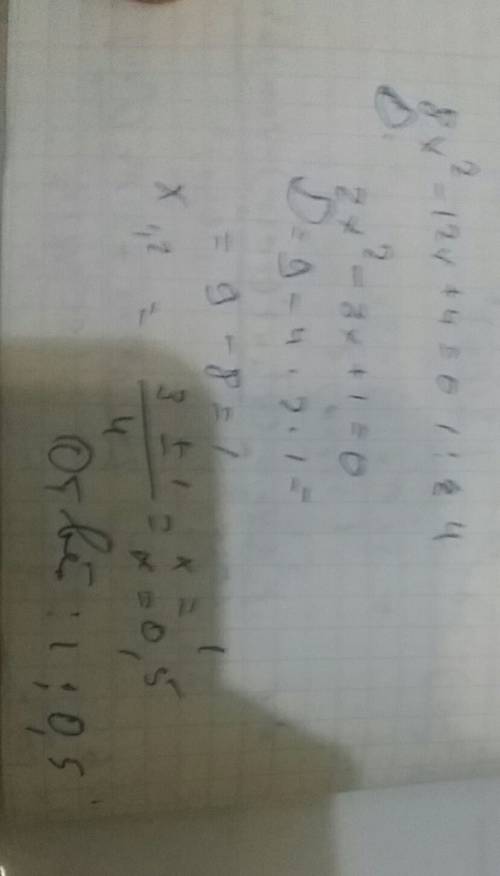 8x² - 12x + 4 = 0 | : 4
2x² - 3x + 1 = 0
D = 9 - 4 · 2 · 1 =
= 9 - 8 = 1
x₁,₂ = (3 ± 1)/4 = x = 1
x = 0,5
Ответ: 1; 0,5